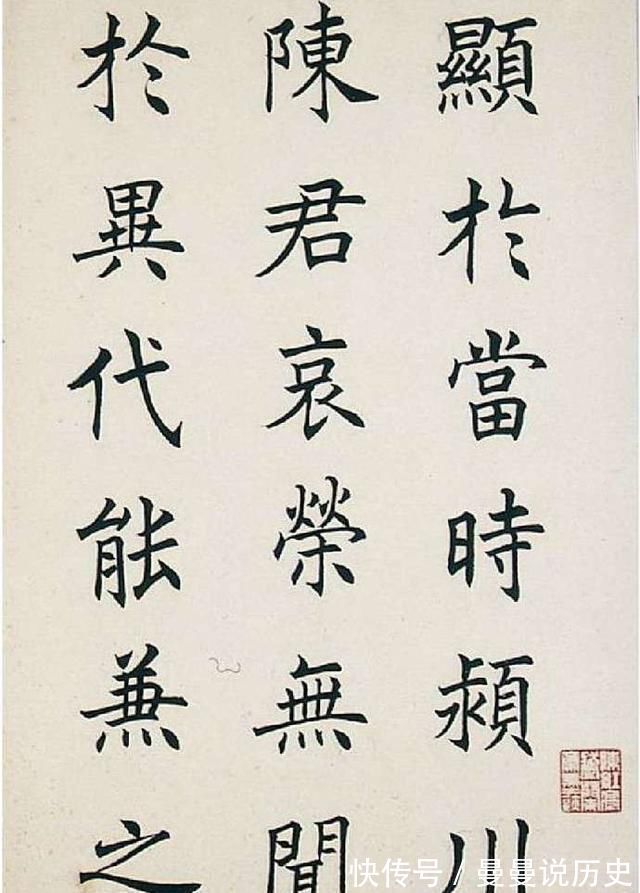 顯於當時潁川
陳君哀榮無聞
於異代能兼之
快传号 / 曼曼说历史